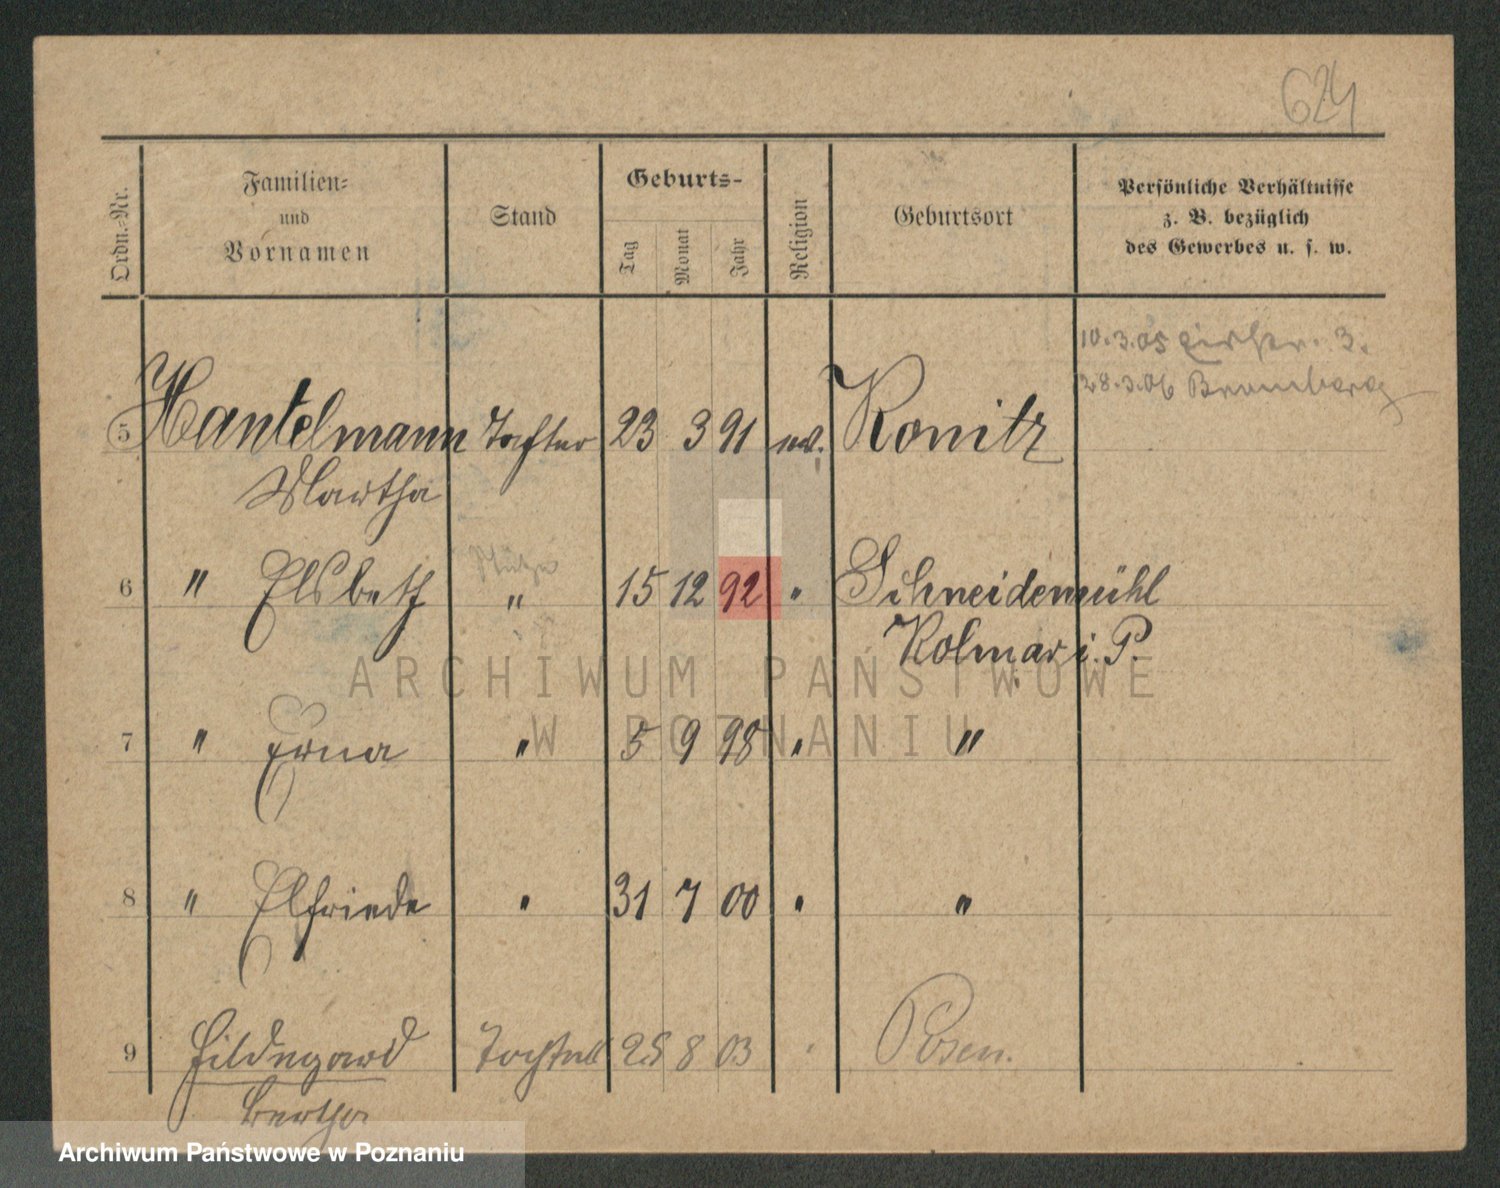 624
Ordn.-Nr.
Familien-
und
Vornamen
Stand
Geburts-
Tag
Monat
Jahr
Religion
Geburtsort
Persönliche Verhältnisse
z. B. bezüglich
des Gewerbes u. s. w.
10.3.05 3.
28.3.06 Bromberg
5 Hantelmann Tochter 23 3 91 Konitz
Martha
6 " Elsbeth " 15 12 92 " Schneidemühl
Kolmar i. P
7 " Erna " 5 9 98 " "
8 " Elfriede " 31 7 00 " "
9 Hildegard Tochter 25 8 03 Posen.
Bertha
ARCHIWUM PAŃSTWOWE
W POZNANIU
Archiwum Państwowe w Poznaniu